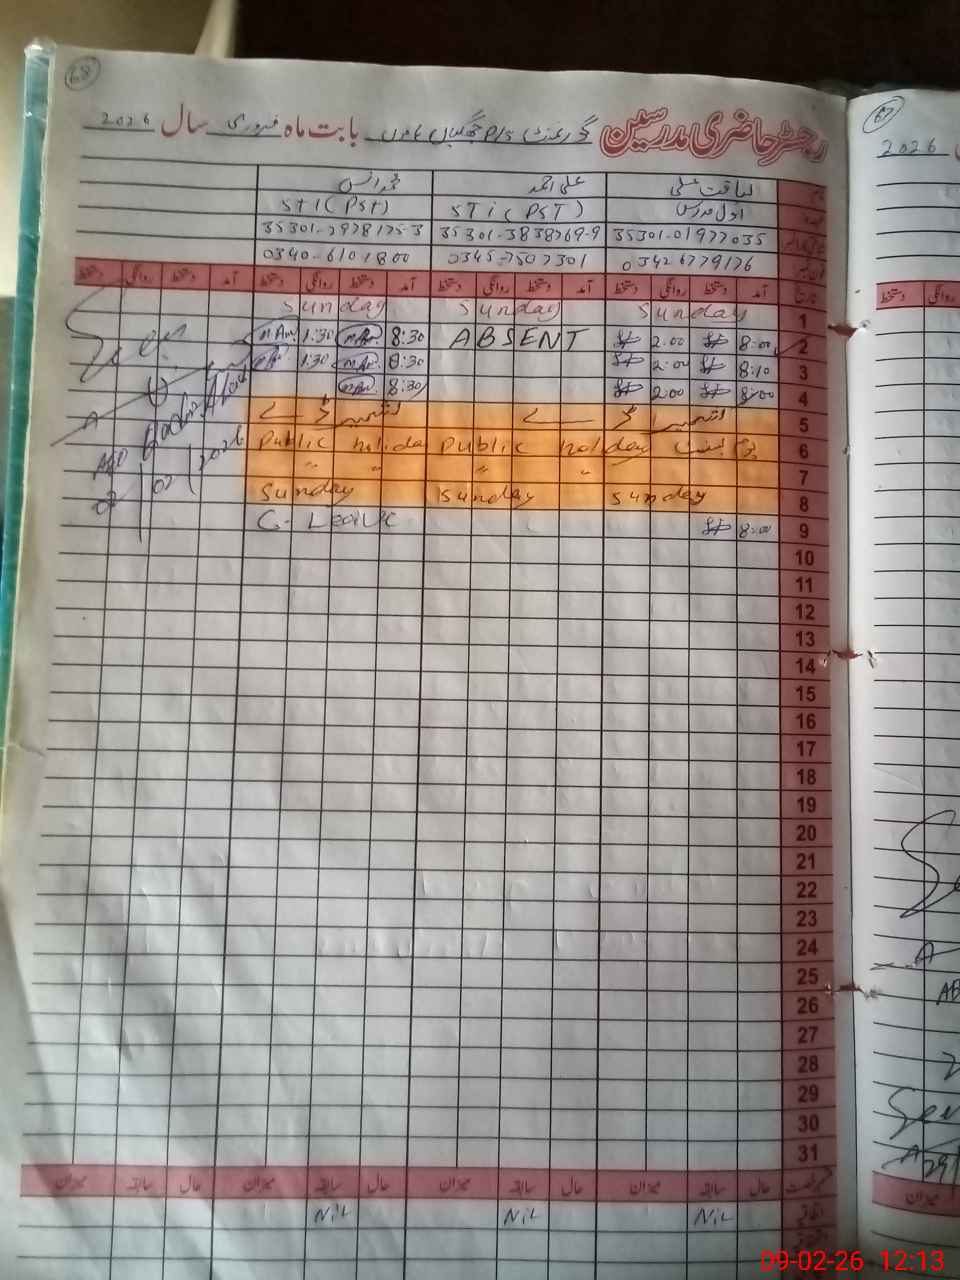 68
رجسٹر حاضری مدرسین گورنمنٹ P/S بابت ماہ فروری سال 2026
لیاقت علی علی احمد محمد انس
اول مدرس STi (PST) STI (PST)
35301-01977035 35301-3838769-9 35301-7978175-3
03426779176 0345-7507301 0340-6101800
تاریخ آمد دستخط روانگی دستخط آمد دستخط روانگی دستخط آمد دستخط روانگی دستخط آمد دستخط روانگی دستخط
1 Sunday Sunday Sunday
2 8:00 2:00 ABSENT 8:30 1:30
3 8:10 2:00 8:30 1:30
4 8:00 2:00 8:30
5
6 Public holiday Public holiday
7 " " " "
8 Sunday Sunday Sunday
9 8:00 C-Leave
10
11
12
13
14
15
16
17
18
19
20
21
22
23
24
25
26
27
28
29
30
31
حال سابقہ میزان حال سابقہ میزان حال سابقہ میزان حال سابقہ میزان
اتفاقیہ Nil Nil Nil
02/02/2026
67
2026
روانگی دستخط
میزان
09-02-26 12:13